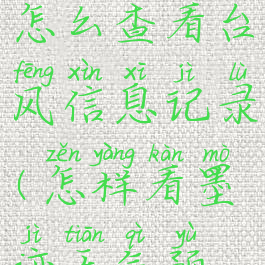 怎么查看台
fēng xìn xī jì lù
风信息记录
zěn yàng kàn mò
(怎样看墨
jì tiān qì yù
迹天气预